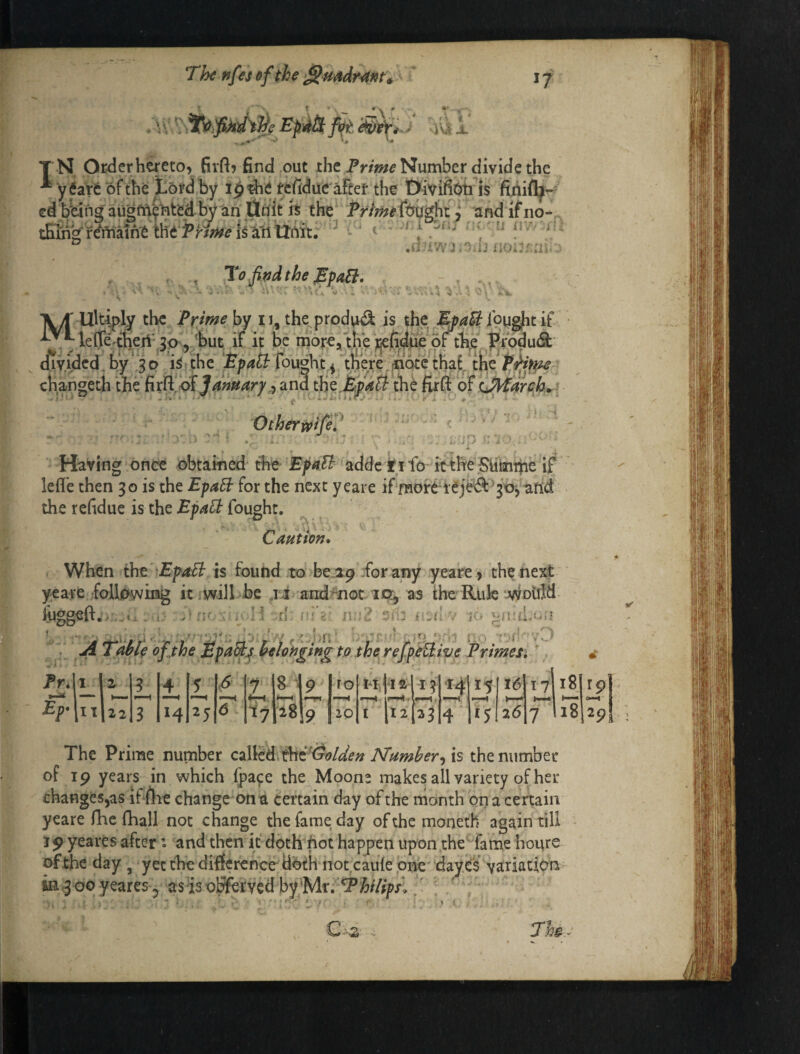 The uses of the Quadrant. 17
To find the Epact for ever.
IN Order hereto, first find out the Prime Number divide the
yeare of the Lord by 19 the residue after the Division is finish-
ed being augmented by an Unit is the Prime sought, and if no-
thing remaine the Prime is an Unit.
To find the Epact.
MUltiply the Prime by 11, the product is the Epact sought if
lesse then 30, but if it be more, the residue of the Product
divided by 30 is the Epact sought, there note that the Prime
changeth the first of January, and the Epact the first of March.
Otherwise.
Having once obtained the Epact adde 11 so it the Summe if
lesse then 30 is the Epact for the next yeare if more reject 30, and
the residue is the Epact sought.
Caution.
When the Epact is found to be 29 for any yeare, the next
yeare following it will be 11 and not 10, as the Rule would
suggest.
A Table of the Epacts belonging to the respective Primes.
Pr. 1 2 3 4 5 6 7 8 9 10 11 12 13 14 15 16 17 18 19
Ep. 11 22 3 14 25 6 17 28 9 20 1 12 23 4 15 26 7 18 29
The Prime number called the Golden Number, is the number
of 19 years in which space the Moone makes all variety of her
changes, as if she change on a certain day of the month on a certain
yeare she shall not change the same day of the moneth again till
19 yeares after: and then it doth not happen upon the same houre
of the day, yet the difference doth not cause one dayes variation
in 300 yeares, as is observed by Mr. Philips.
C 2
The